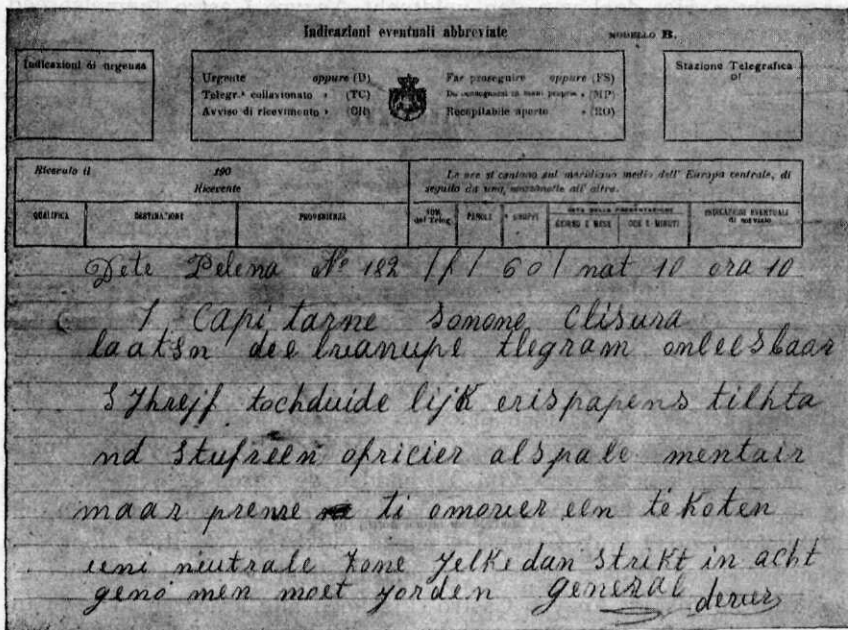 Indicazioni eventuali abbreviate
MODELLO B.
Indicazioni di urgenza
Urgente oppure (D)
Telegr.ᵃ collazionato » (TC)
Avviso di ricevimento » (CR)
Far proseguire oppure (FS)
Da consegnarsi in mani proprie » (MP)
Recapitabile aperto » (RO)
Stazione Telegrafica
DI
Ricevuto il 190
Ricevente
Le ore si contano sul meridiano medio dell' Europa centrale, di
seguito da una mezzanotte all' altra.
QUALIFICA DESTINAZIONE PROVENIENZA NUM. del Teleg. PAROLE GRUPPI DATA DELLA PRESENTAZIONE GIORNO E MESE ORE E MINUTI INDICAZIONI EVENTUALI
Dete Pelena Nº 182 / f / 60 / nat 10 ora 10
1 Capi tarne Sonone Clisura
laatsn dee tlegram onleesbaar
SJhrejf tochduide lijk erispapens tilhta
nd Stufreen ofricier alspale mentair
maar prenre ti omover een te Koten
eeni neutrale Zone yelke dan Strikt in acht
geno men moet yorden general derver